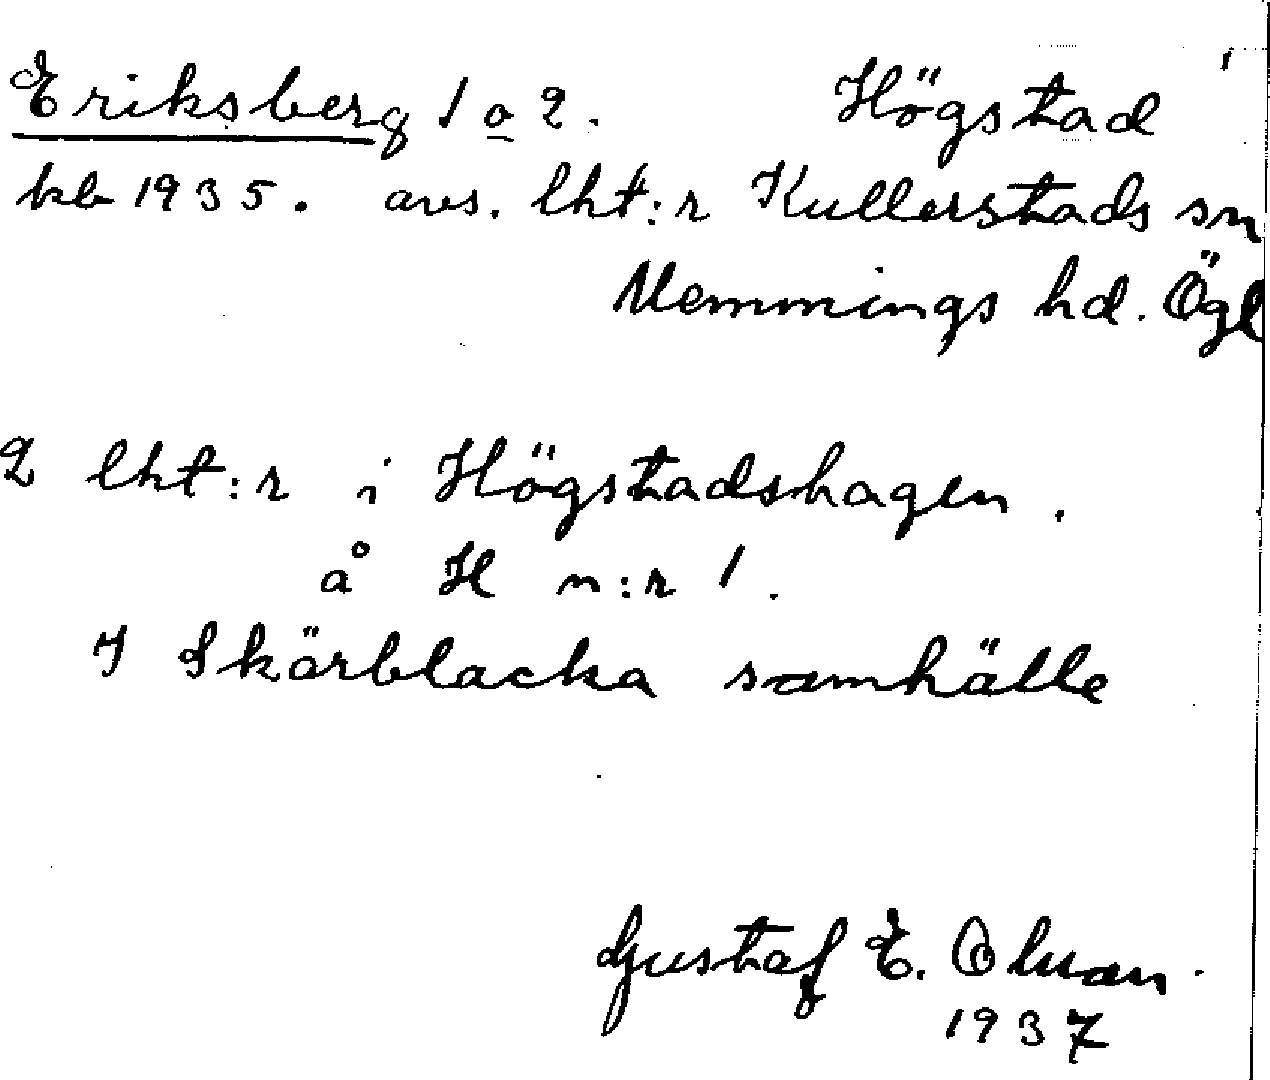 Eriksberg 1 o 2. Högstad
kb 1935. avs. lht:r Kullerstads sn
Memmings hd. Ögl
2 lht:r i Högstadshagen.
å H n:r 1.
I Skärblacka samhälle
Gustaf E. Olsson.
1937